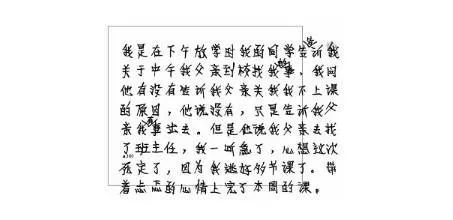 我是在下午放学时我的同学告诉我
关于中午我父亲到校找我事，我问
他有没有告诉我父亲关我我不上课
的原因，他说没有，只是告诉我父
亲我事出去。但是他说我父亲去找
了班主任，我一听急了，心想这次
死定了，因为我逃好多节课了。带
着忐忑的心情上完了本周的课。